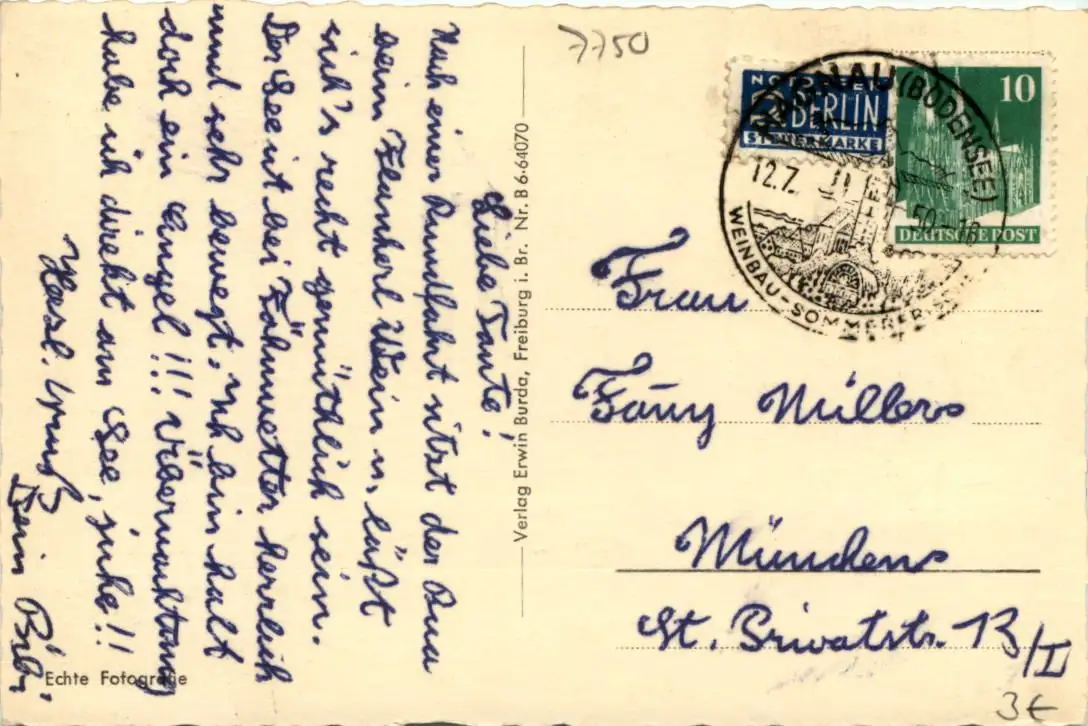 Liebe Tante!
Nach einer Rundfahrt sitzt der Bua
beim Flascherl Wein u. läßt
sich's recht gemütlich sein.
Der See ist bei Föhnwetter herrlich
und sehr bewegt, ich bin halt
doch ein Engel!!! Übernachtung
habe ich direkt am See, juhe!!
Herzl. Gruß
Dein Bibi
Echte Fotografie
Verlag Erwin Burda, Freiburg i. Br. Nr. B 6·64070
7750
NOTOPFER
2 BERLIN
STEUERMARKE
10
DEUTSCHE POST
HAGNAU (BODENSEE)
12.7. 50
WEINBAU-SOMMERFR
Frau
Fany Müller
München
St. Privatstr. 13/I
3€